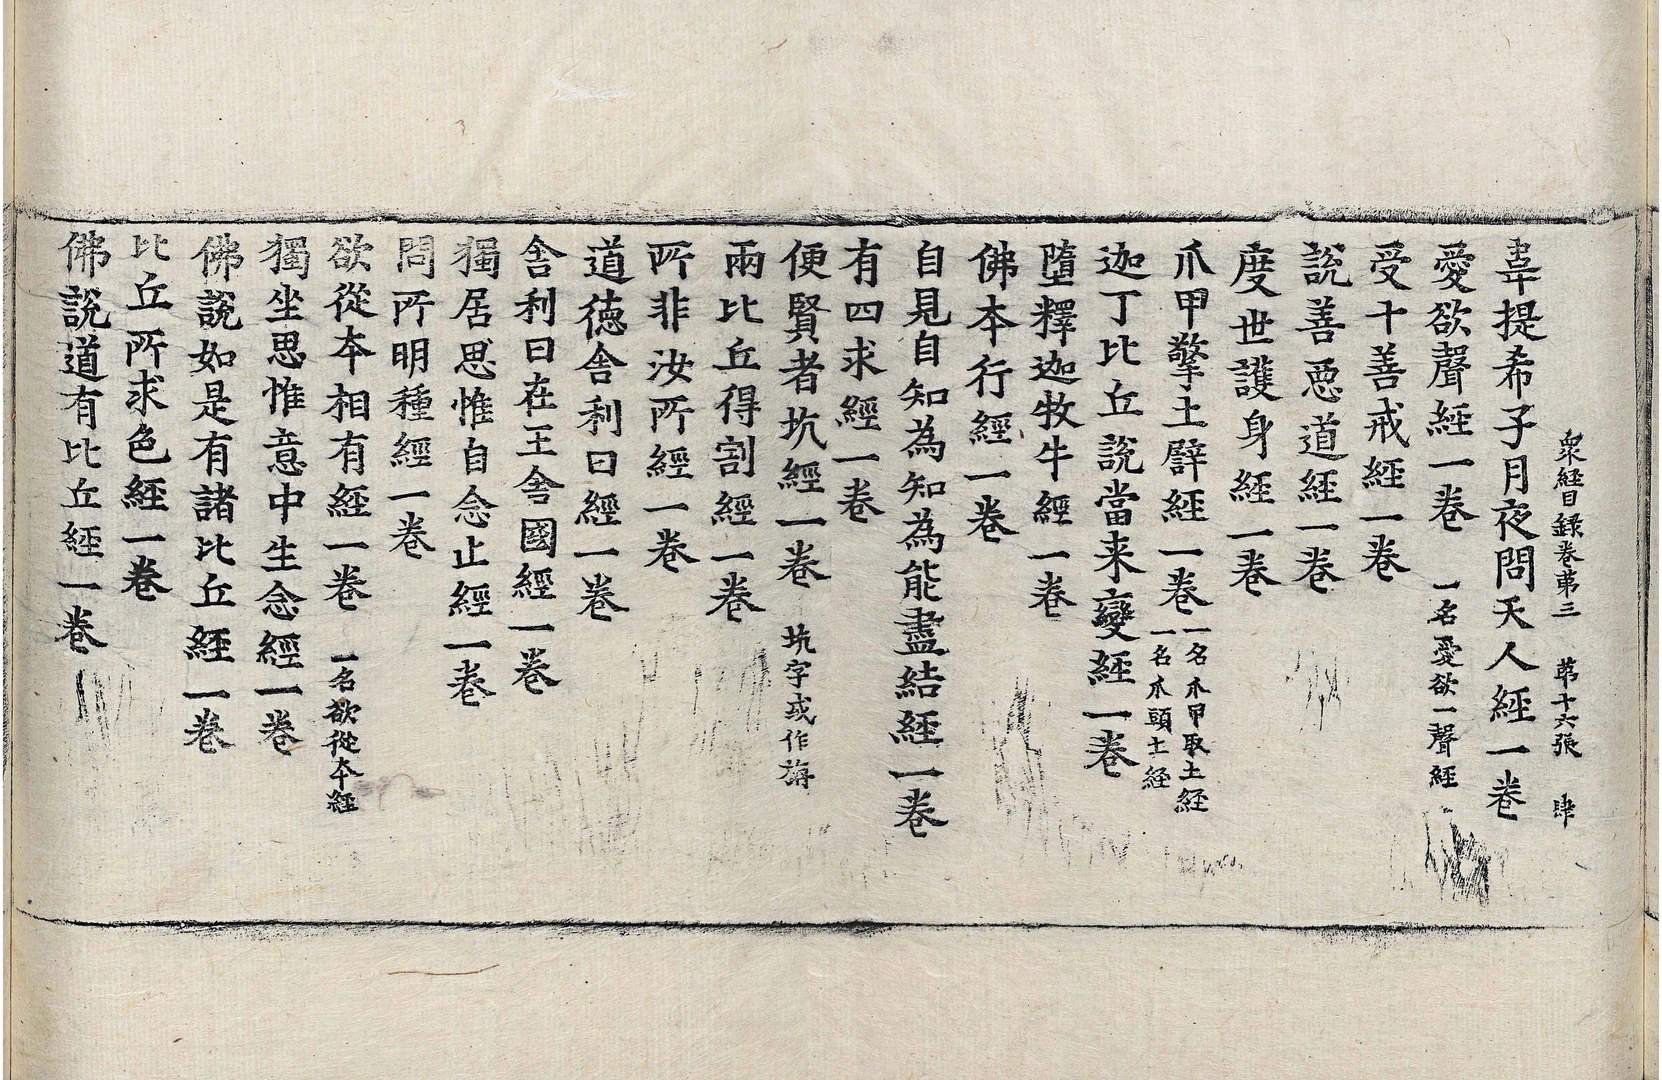 衆経目録卷苐三 苐十六張 肆
韋提希子月夜問天人經一卷
愛欲聲經一卷 一名愛欲一聲經
受十善戒經一卷
說善惡道經一卷
度世護身經一卷
爪甲擎土譬經一卷 一名爪甲取土経
一名爪頭土経
迦丁比丘說當来變經一卷
墮釋迦牧牛經一卷
佛本行經一卷
自見自知為知為能盡結經一卷
有四求經一卷
便賢者坑經一卷 坑字或作旃
兩比丘得割經一卷
所非汝所經一卷
道德舎利曰經一卷
舎利曰在王舎國經一卷
獨居思惟自念止經一卷
問所明種經一卷
欲從本相有經一卷 一名欲從本経
獨坐思惟意中生念經一卷
佛說如是有諸比丘經一卷
比丘所求色經一卷
佛說道有比丘經一卷